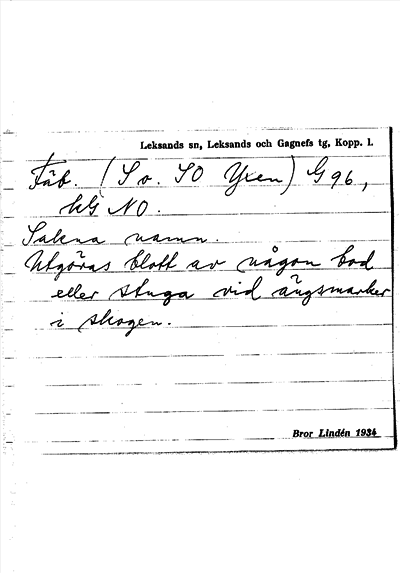 Leksands sn, Leksands och Gagnefs tg, Kopp. l.
Fäb. (S o. SO Yxen) G 96,
kG NO.
Sakna namn.
Utgöras blott av någon bod
eller stuga vid ängsmarker
i skogen.
Bror Lindén 1934